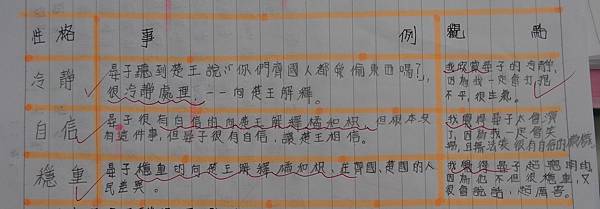 性格 事 例 觀 點
冷靜
晏子聽到楚王說:「你們齊國人都愛偷東西嗎?」,
很冷靜處理,--向楚王解釋。
我欣賞晏子的冷靜,
因為我一定會打抱
不平,很生氣。
自信
晏子很有自信的向楚王解釋橘和枳,但根本沒
有這件事,但晏子很有自信,讓楚王相信。
我覺得晏子太會演
了,因為我一定會笑
場,且無法裝很有自信的
穩重
晏子穩重的向楚王解釋橘和枳,在齊國、楚國的人
民差異。
我覺得晏子超聰明的
因為他不但很穩重,又
很會說話,超厲害。